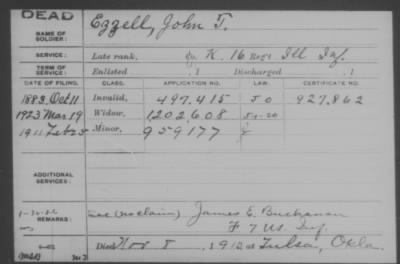 DEAD
NAME OF SOLDIER: Ezzell, John T.
SERVICE: Late rank, Co. K, 16 Reg't Ill Inf.
TERM OF SERVICE: Enlisted , 1 Discharged , 1
DATE OF FILING. CLASS. APPLICATION NO. LAW. CERTIFICATE NO.
1883 Oct 11 Invalid, 497,415 S O 927,862
1923 Mar 19 Widow, 1202,608
1911 Feb 25 Minor, 959177
ADDITIONAL SERVICES:
REMARKS: (no claim) James E. Buchanan
F 7 US. Inf.
Died Nov 8, 1910 at Tulsa, Okla.